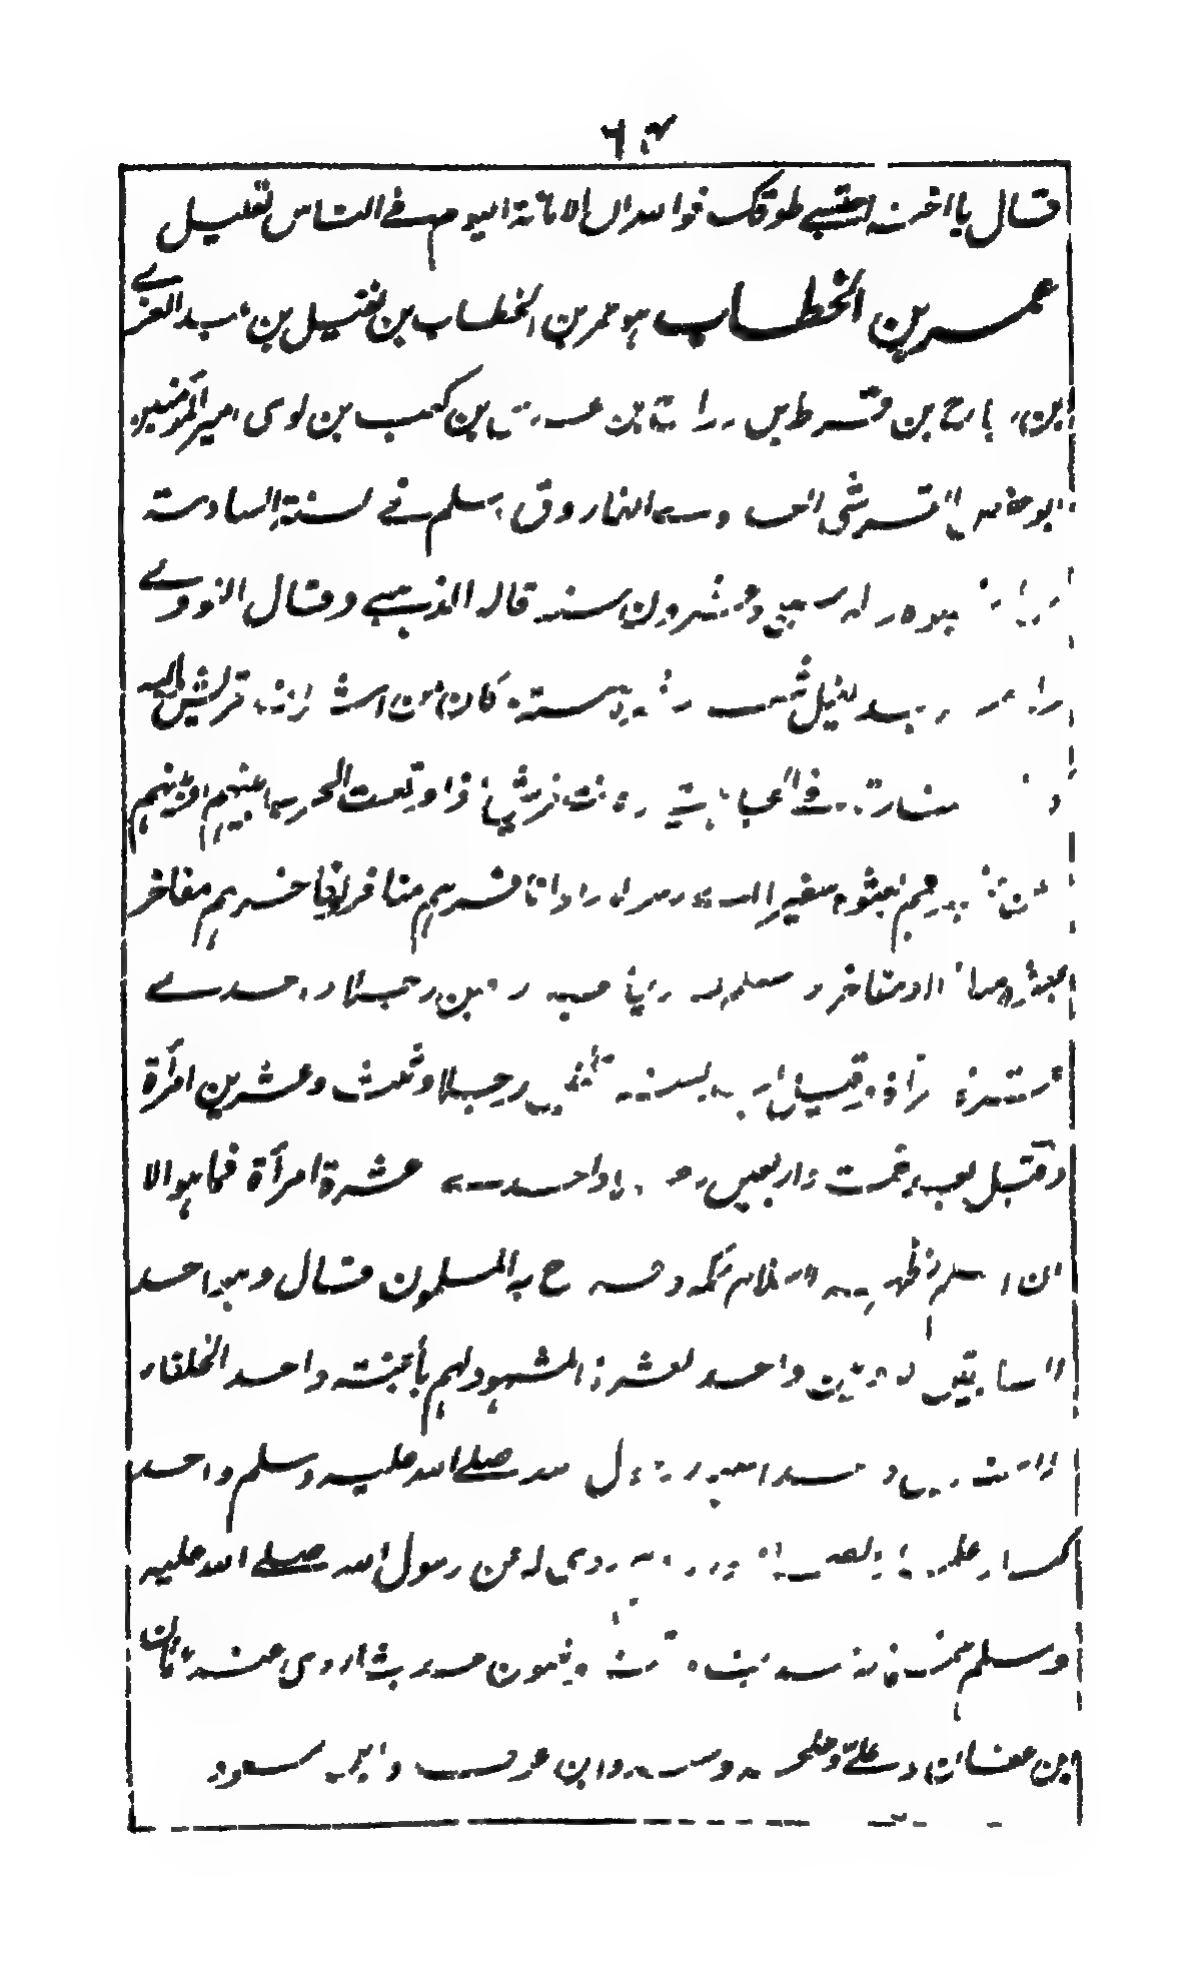 فقال يا اخته احتسبي طوقك فوالله ان الامانة اليوم في الناس لقليل
عمر بن الخطاب هو عمر بن الخطاب بن نفيل بن عبد العزي
بن رياح بن قرط بن رزاح بن عدي بن كعب بن لوى امير المؤمنين
ابو حفص القرشي العدوي الفاروق اسلم في السنة السادسة
من النبوة وله سبع وعشرون سنة قاله الذهبي وقال النووي
ولد بعد الفيل بثلث عشرة سنة كان من اشراف قريش واليه
السفارة في الجاهلية فكانت قريش اذا وقعت الحرب بينهم او بينهم
وبين غيرهم بعثوه سفيرا اي رسولا واذا نافرهم منافر او فاخرهم مفاخر
بعثوه منافرا او مفاخرا واسلم قديما بعد اربعين رجلا واحدي
عشرة امرأة وقيل بعد تسعة وثلثين رجلا وثلث وعشرين امرأة
وقيل بعد خمسة واربعين رجلا واحدي عشرة امرأة فما هو الا
ان اسلم فظهر الاسلام بمكة وفرح به المسلمون قال وهو احد
السابقين الاولين واحد العشرة المشهود لهم بالجنة واحد الخلفاء
الراشدين واحد اصهار رسول الله صلى الله عليه وسلم واحد
كبار علماء الصحابة وزهادهم روى له عن رسول الله صلى الله عليه
وسلم خمسمائة حديث وتسعة وثلثون حديثا روى عنه عثمان
بن عفان وعلي وطلحة وسعد وابن عوف وابن مسعود